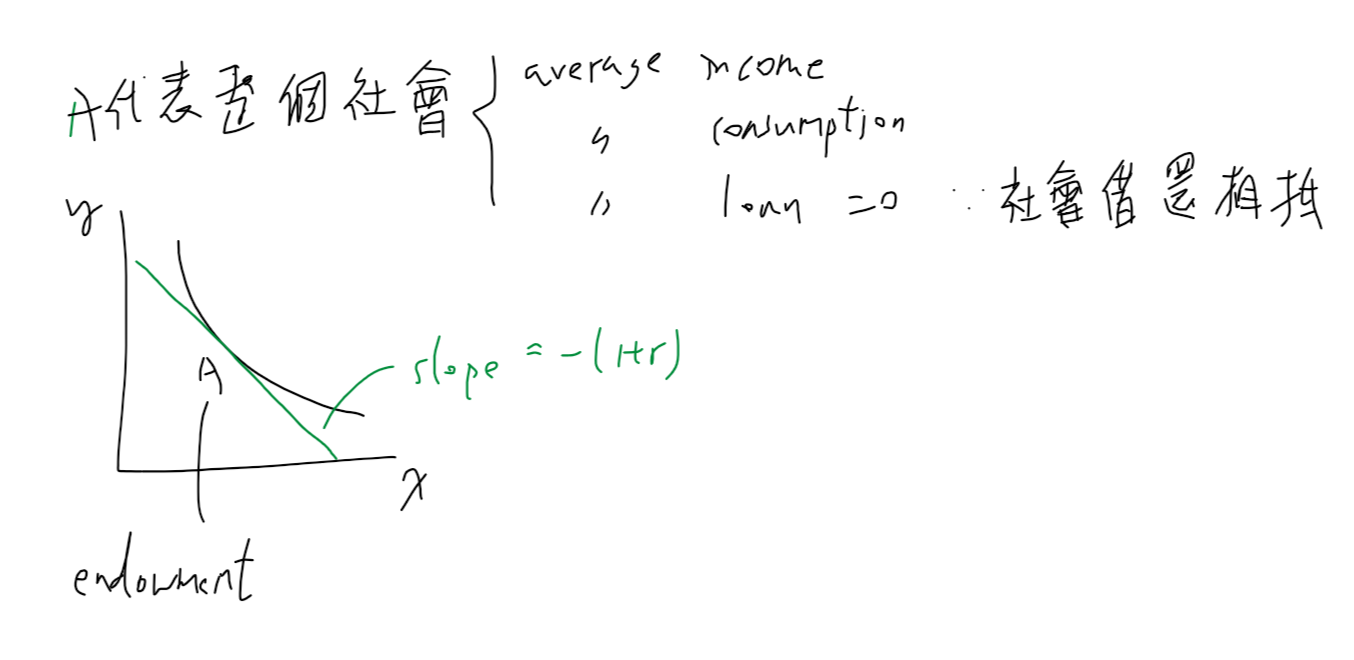 A代表整個社會 { average income
〃 consumption
〃 loan =0 ∵社會借還相抵
y
A
slope = -(1+r)
x
endowment